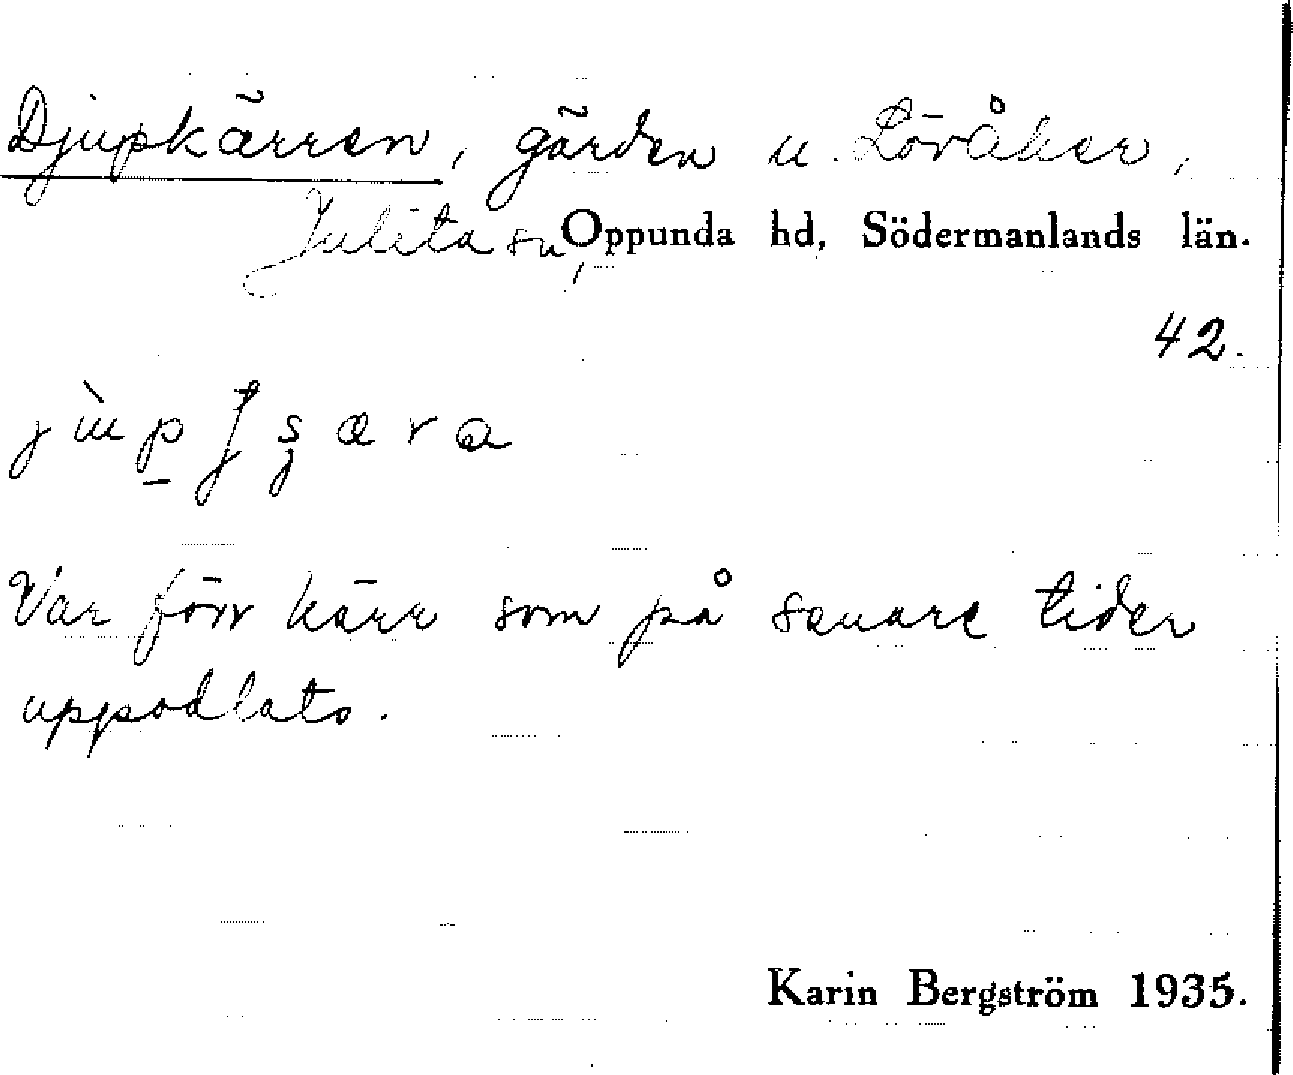 Djupkärren, gärden u. Lövåker,
Julita sn, Oppunda hd, Södermanlands län.
42.
Var förr kärr som på senare tider
uppodlats.
Karin Bergström 1935.